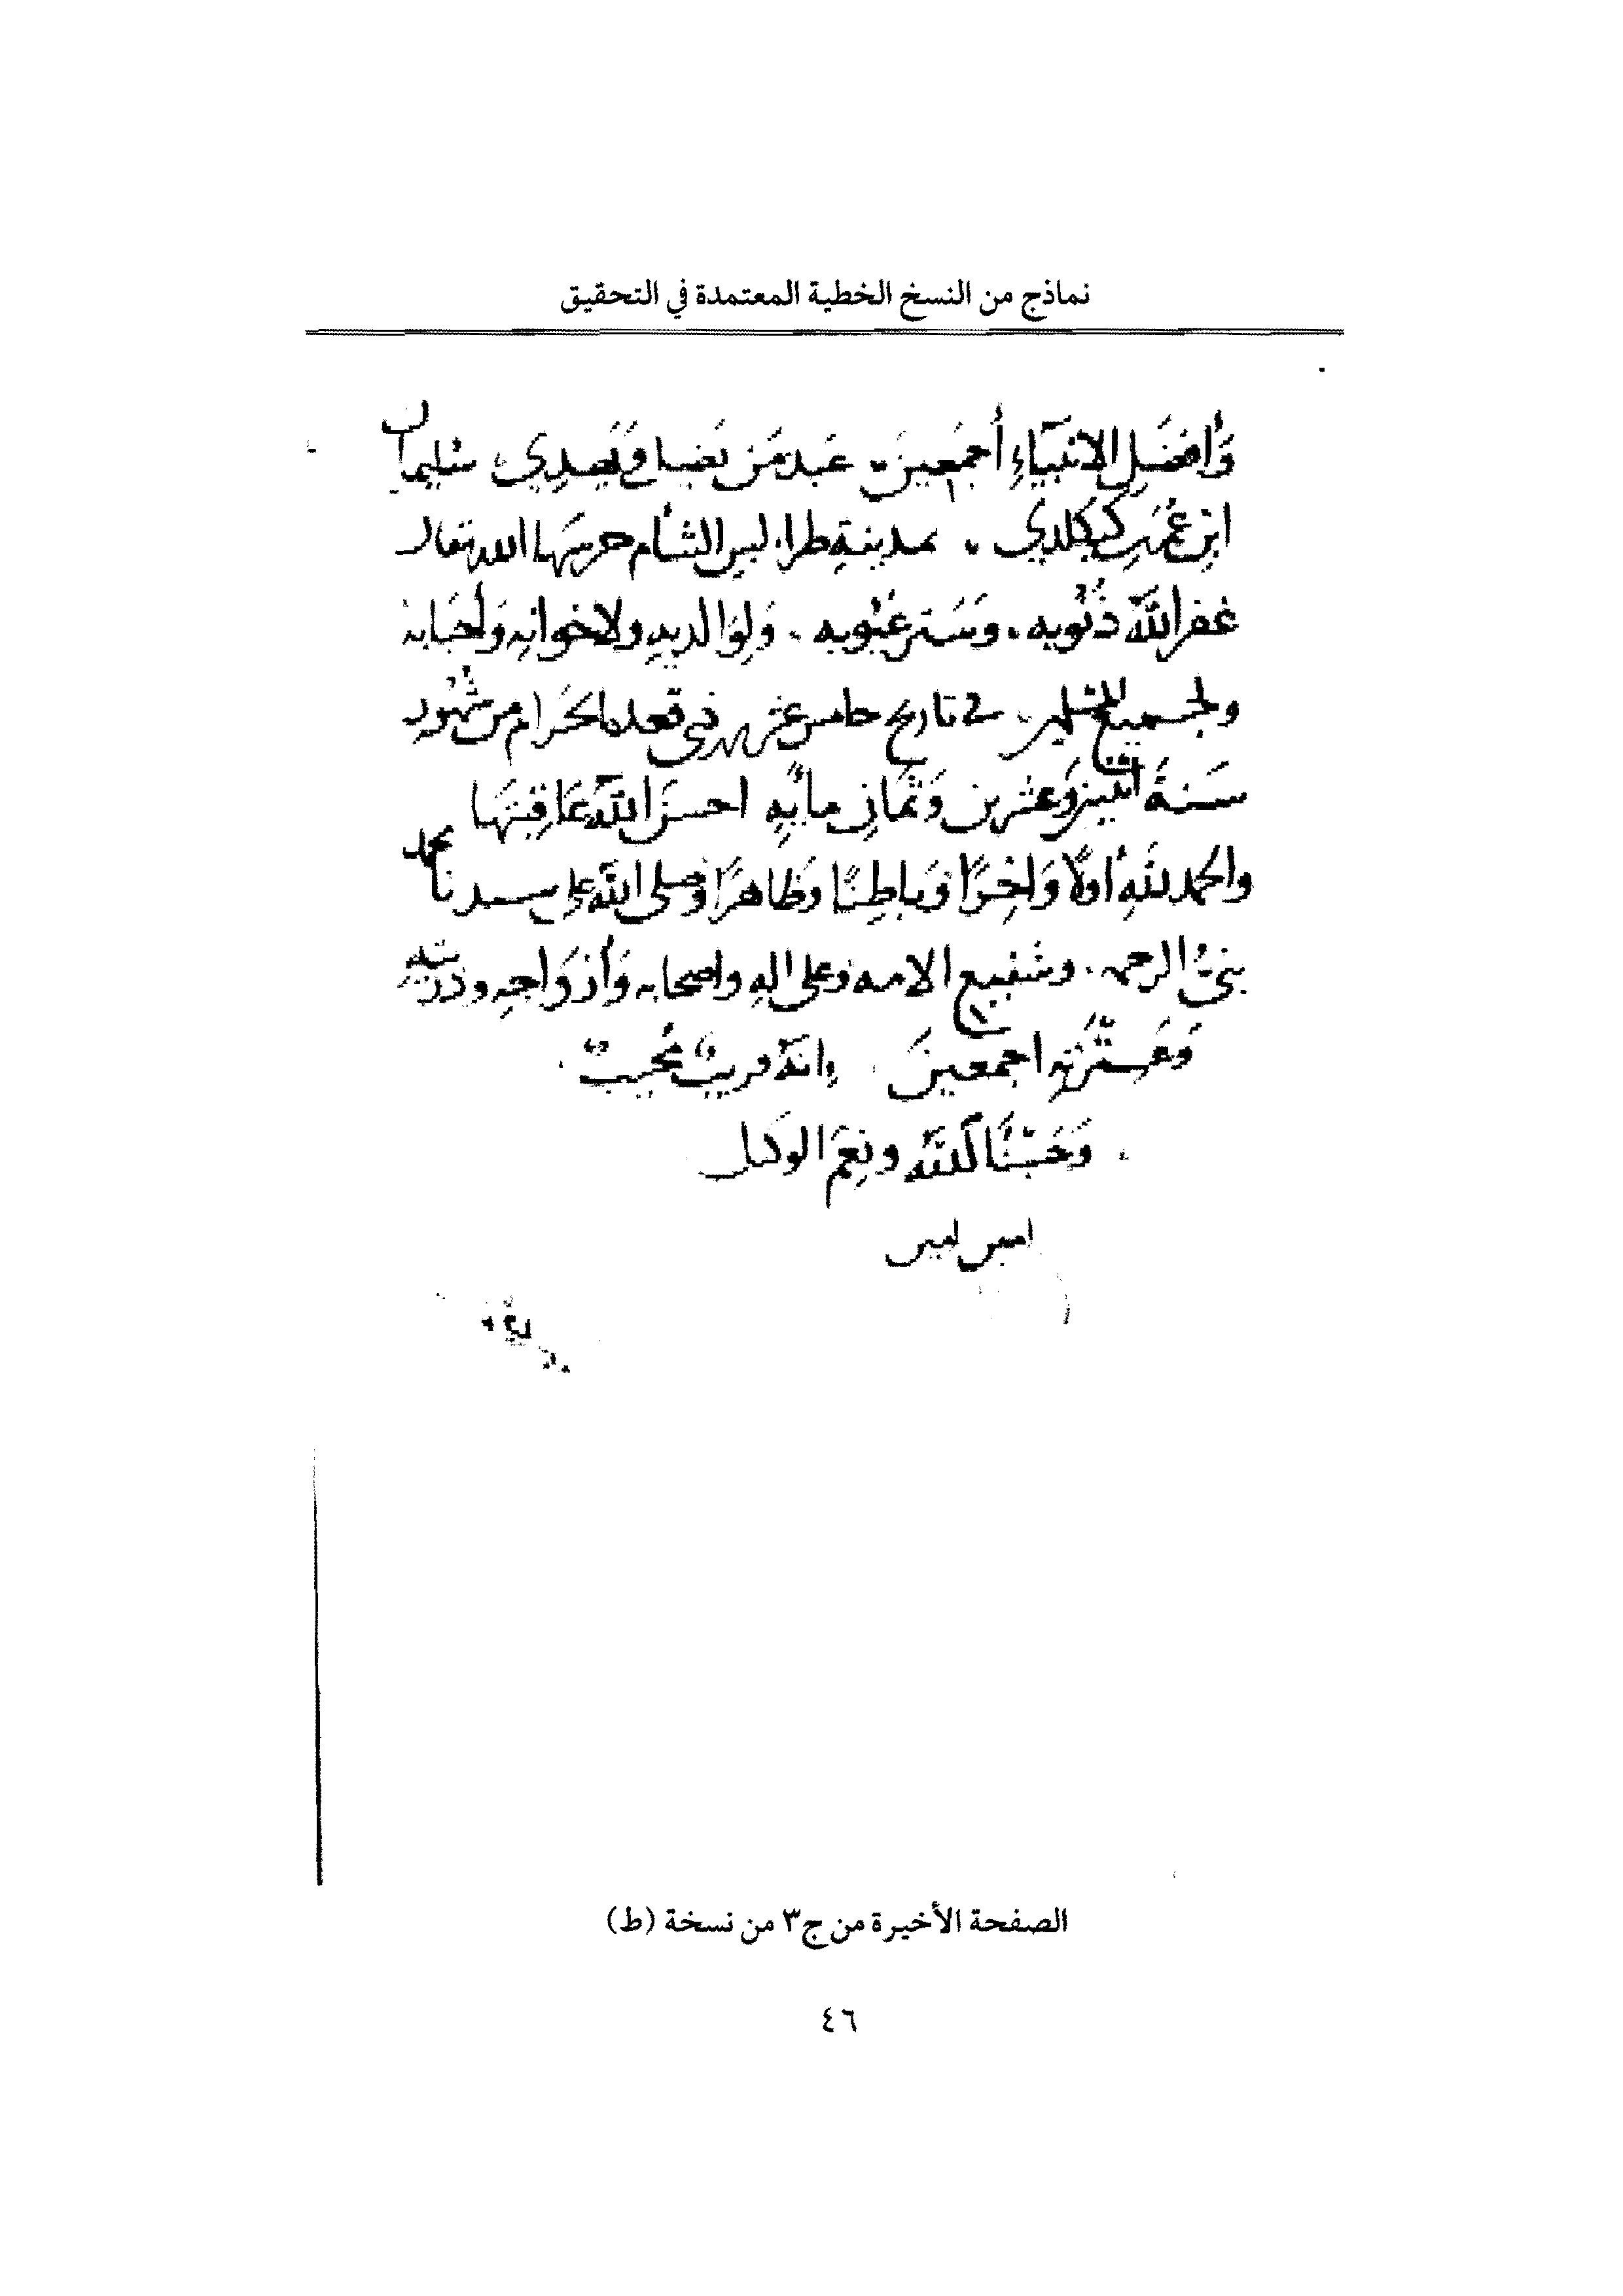 نماذج من النسخ الخطية المعتمدة في التحقيق
وَأفضَلِ الانبيَاءِ أجمَعينَ عَبد مَن سليمان
ابن عُمَر كيكلدي بمدينةِ طرابلس الشأم حرسَها الله تعالى
غفر اللَّهُ ذنُوبه، وسَتر عيُوبه. وَلِوَالديهِ ولاخوانِه وَأحبَابه
ولجميع المسلمين في تاريخ خامس عشر ذي قعدة الحَرام من شهُور
سَنةَ اثنين وعشرين وَثمَانِ مأيه احسَنَ اللَّهُ عَاقبتهَا
والحمد للَّهِ أولًا وَاخِرًا وَباطِنًا وظاهرًا وصَلى اللَّه على سيدنا محمد
نبيّ الرحمه. وشفيع الامه وعلى الهِ واصحابه وَأزوَاجهِ وذرّيته
وَعِترتِه اجمعينَ إنهُ قريبٌ مُجيبٌ
وَحَسْبُنَا اللَّه ونِعمَ الوَكيل
امين امين
الصفحة الأخيرة من ج٣ من نسخة (ط)
٤٦